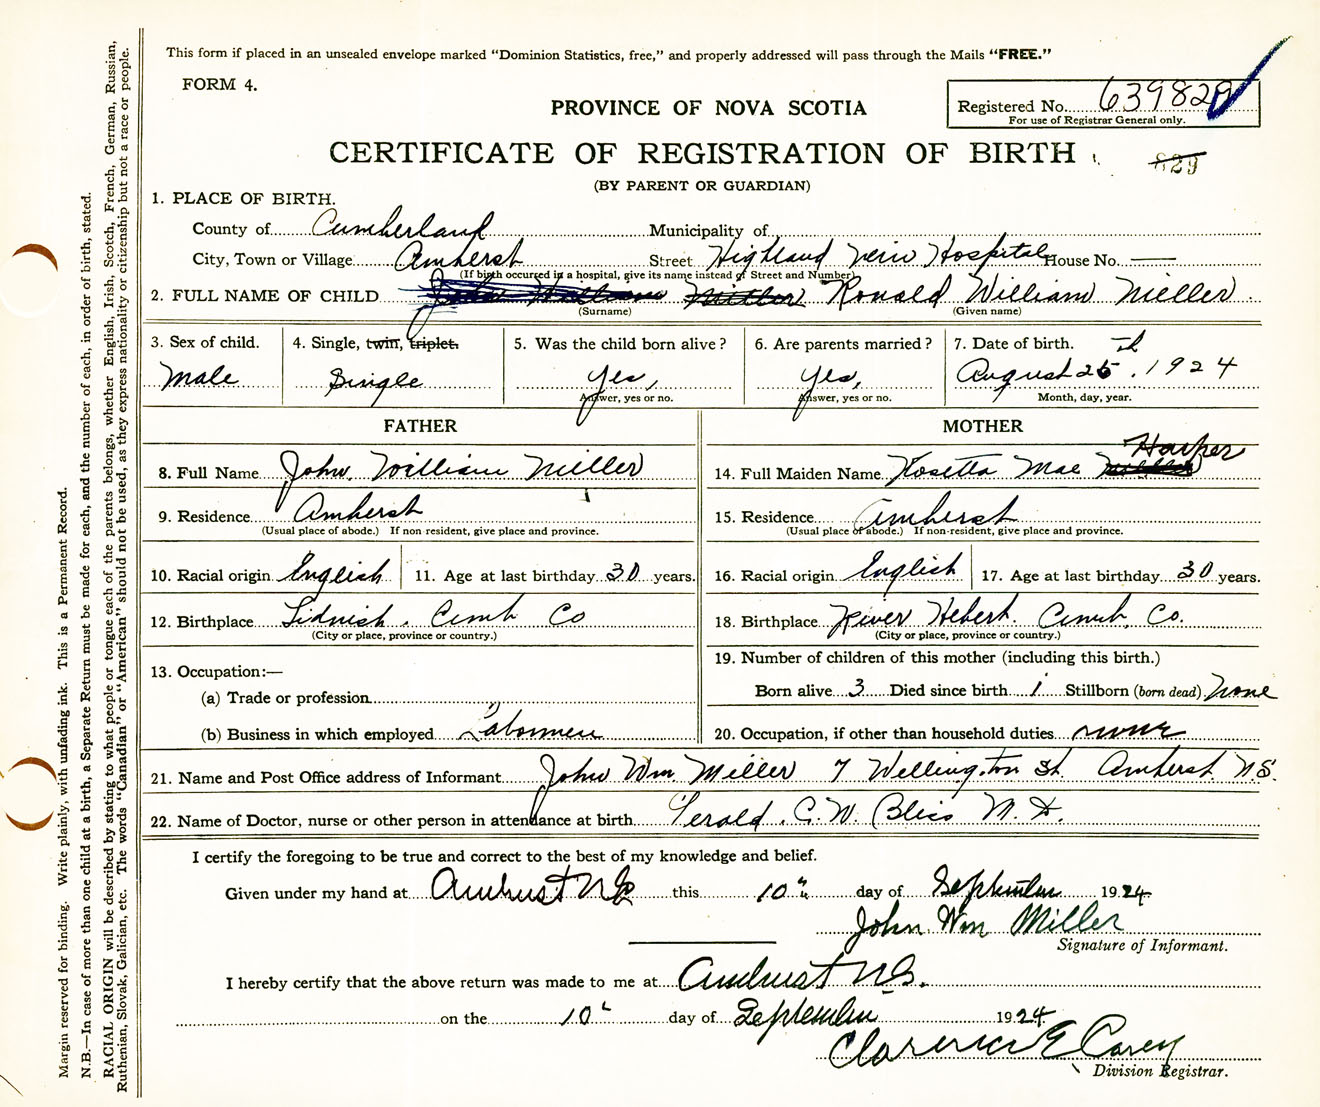 This form if placed in an unsealed envelope marked "Dominion Statistics, free," and properly addressed will pass through the Mails "FREE."
FORM 4.
PROVINCE OF NOVA SCOTIA
Registered No. 639829
For use of Registrar General only.
CERTIFICATE OF REGISTRATION OF BIRTH
829
(BY PARENT OR GUARDIAN)
1. PLACE OF BIRTH.
County of Cumberland Municipality of
City, Town or Village Amherst Street Highland View Hospital House No. —
(If birth occurred in a hospital, give its name instead of Street and Number)
2. FULL NAME OF CHILD John William Miller Ronald William Miller
(Surname) (Given name)
3. Sex of child. 4. Single, twin, triplet. 5. Was the child born alive? 6. Are parents married? 7. Date of birth.
Male Single Yes, Yes, August 25th, 1924
Answer, yes or no. Answer, yes or no. Month, day, year.
FATHER MOTHER
8. Full Name John William Miller 14. Full Maiden Name Rosetta Mae Harper
9. Residence Amherst 15. Residence Amherst
(Usual place of abode.) If non-resident, give place and province. (Usual place of abode.) If non-resident, give place and province.
10. Racial origin English 11. Age at last birthday 30 years. 16. Racial origin English 17. Age at last birthday 30 years.
12. Birthplace Lidnish. Cumb Co 18. Birthplace River Hebert. Cumb. Co.
(City or place, province or country.) (City or place, province or country.)
13. Occupation:— 19. Number of children of this mother (including this birth.)
(a) Trade or profession Born alive 3 Died since birth 1 Stillborn (born dead) none
(b) Business in which employed 20. Occupation, if other than household duties none
21. Name and Post Office address of Informant John Wm. Miller 7 Wellington St. Amherst N.S.
22. Name of Doctor, nurse or other person in attendance at birth Gerald. C. W. Bliss M. D.
I certify the foregoing to be true and correct to the best of my knowledge and belief.
Given under my hand at Amherst N.S. this 10th day of September 1924
John Wm Miller
Signature of Informant.
I hereby certify that the above return was made to me at Amherst N.S.
on the 10th day of September 1924
Clarence E Carey
Division Registrar.
Margin reserved for binding. Write plainly, with unfading ink. This is a Permanent Record.
N.B.—In case of more than one child at a birth, a Separate Return must be made for each, and the number of each, in order of birth, stated.
RACIAL ORIGIN will be described by stating to what people or tongue each of the parents belongs, whether English, Irish, Scotch, French, German, Russian,
Ruthenian, Slovak, Galician, etc. The words "Canadian" or "American" should not be used, as they express nationality or citizenship but not a race or people.